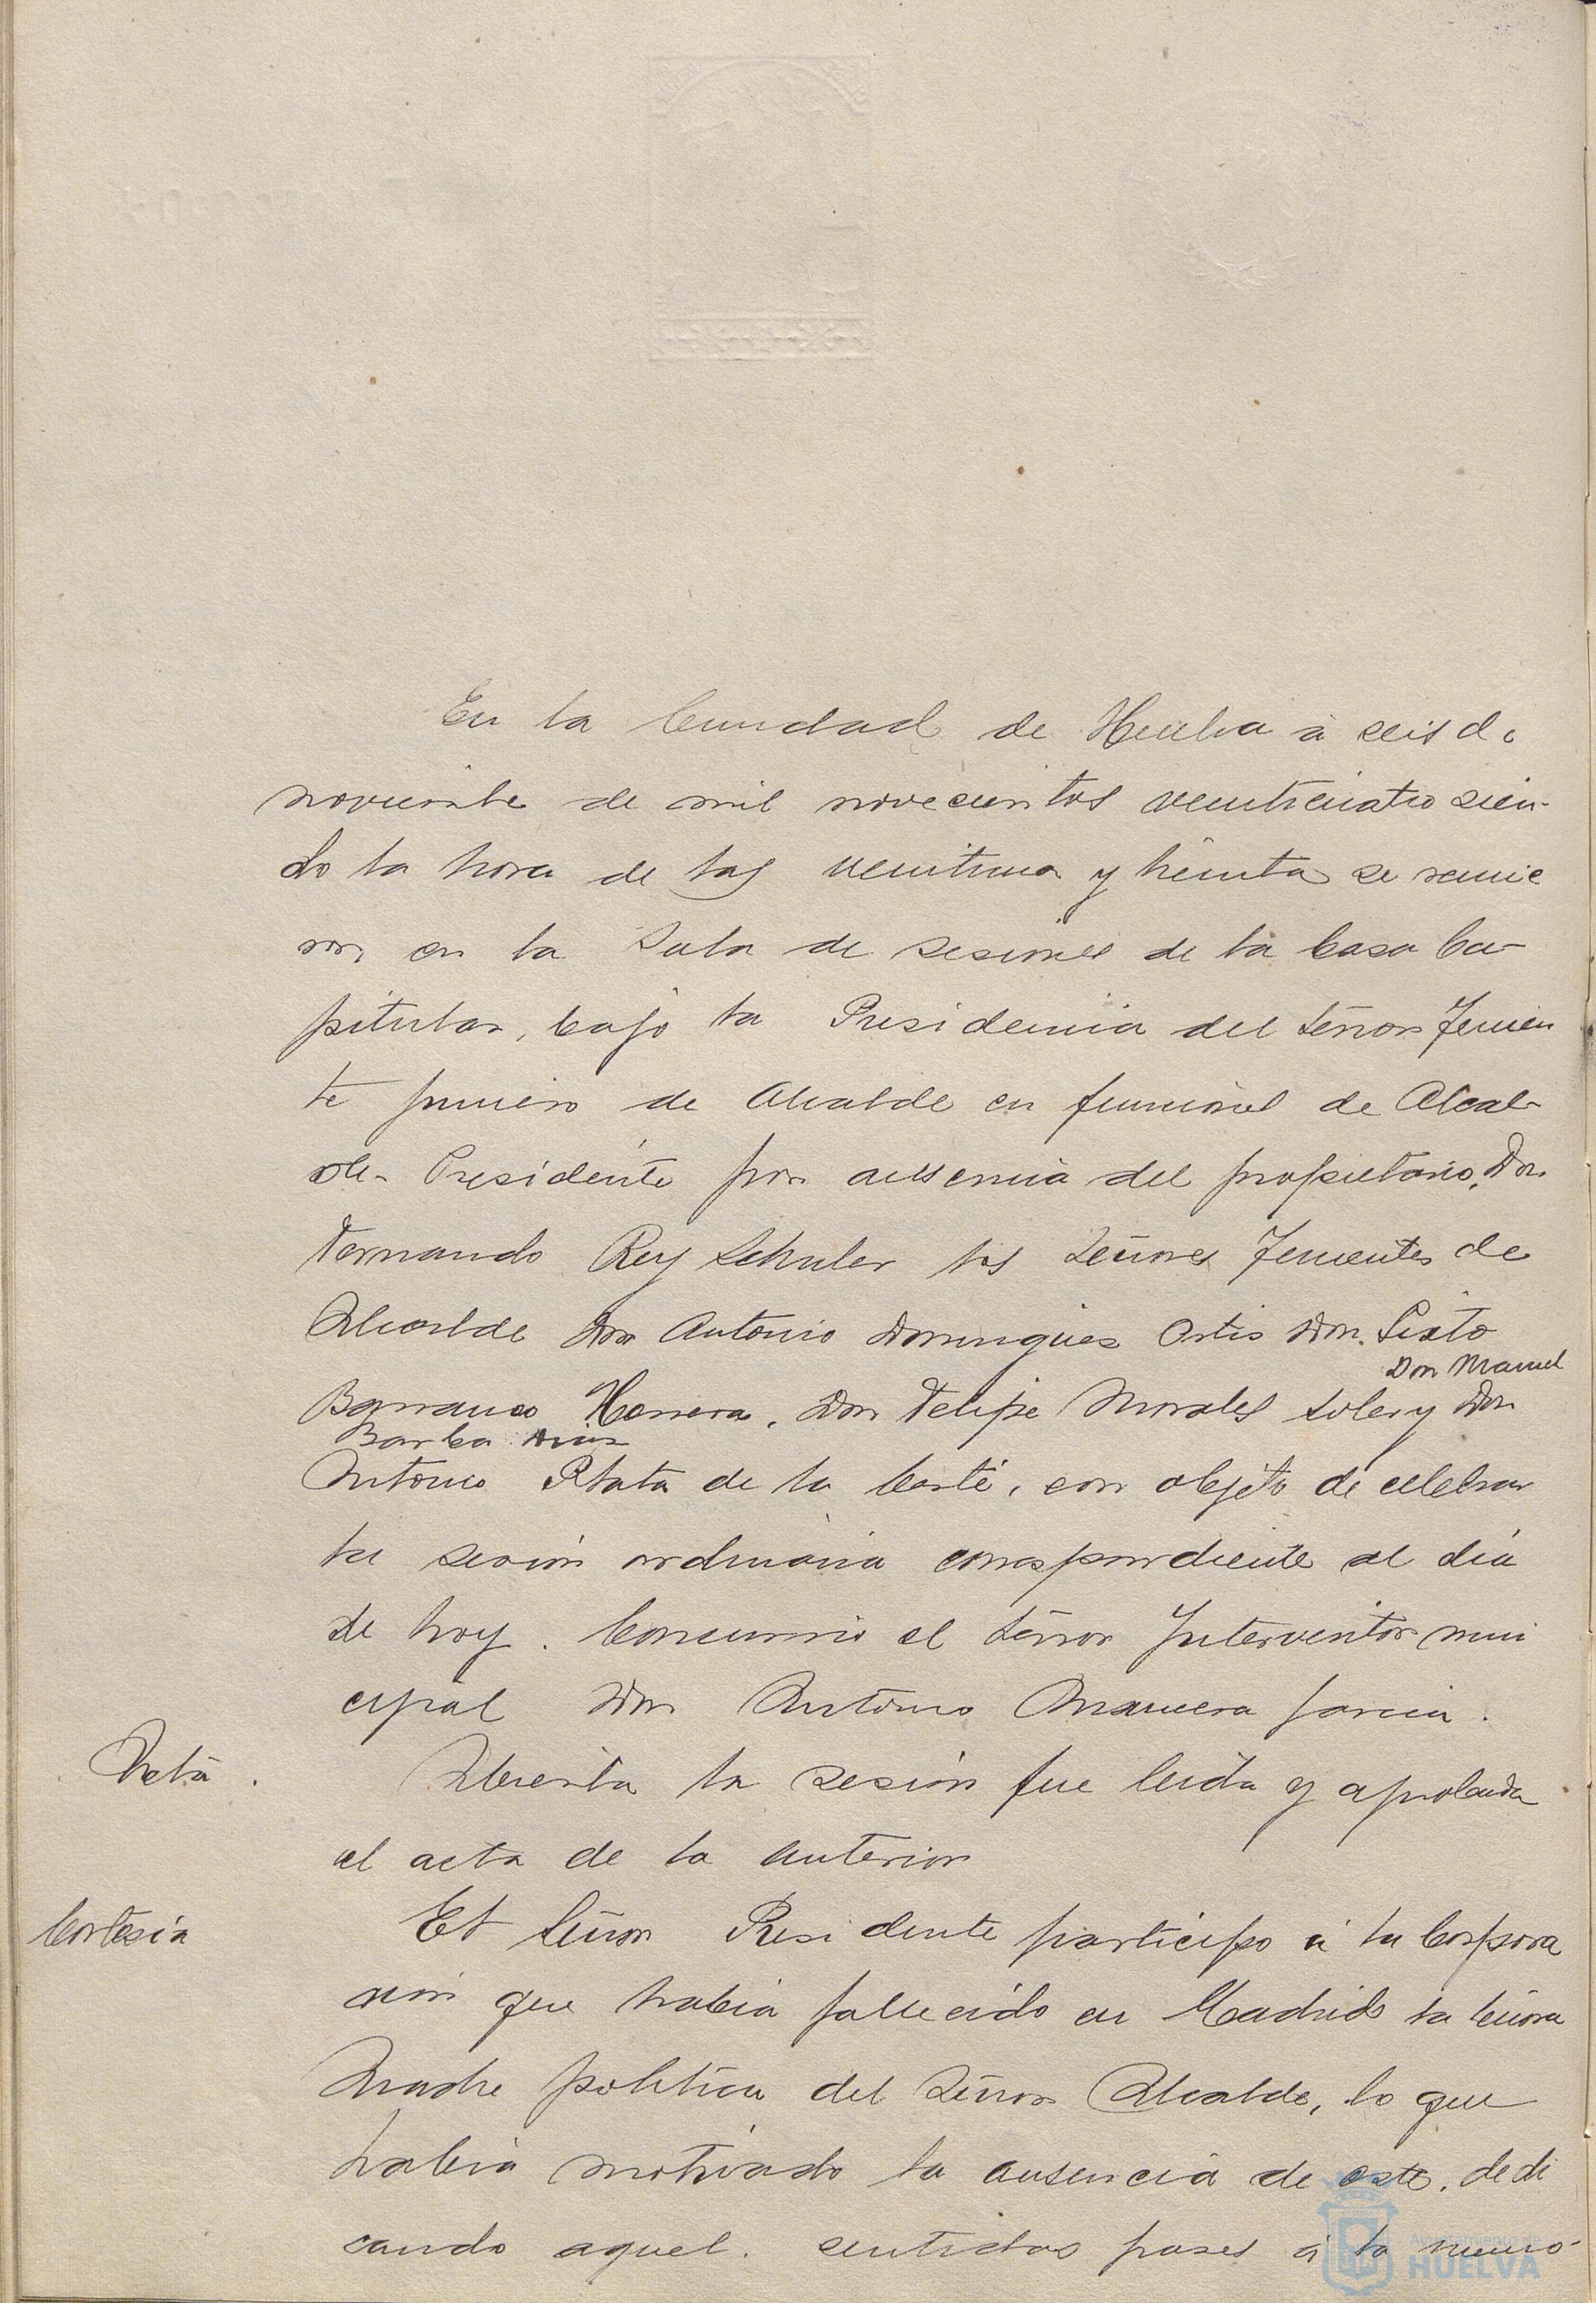 En la Ciudad de Huelva á seis de
noviembre de mil novecientos veinticuatro sien-
do la hora de las veintiuna y treinta se reunie
ron en la Sala de sesiones de la Casa Ca-
pitular, bajo la Presidencia del Señor Tenien
te primero de Alcalde en funciones de Alcal-
de-Presidente por ausencia del propietario, Don
Fernando Rey Schuler los Señores Tenientes de
Alcalde Don Antonio Domingues Ortis Don Sixto
Don Manuel
Barranco Herrera, Don Felipe Morales Soler y Don
Barba Dias
Antonio Plata de la Corte, con objeto de celebrar
la sesión ordinaria correspondiente al día
de hoy. Concurrió el Señor Interventor muni
cipal Don Antonio Manuera Garcia.
Acta.
Abierta la sesión fue leida y aprobada
el acta de la anterior
Cortesía
El Señor Presidente participo á la Corpora
ción que habia fallecido en Madrid la Señora
Madre politica del Señor Alcalde, lo que
habia motivado la ausencia de este, dedi
cando aquel. sentidas frases á la memo-
Ayuntamiento de
HUELVA